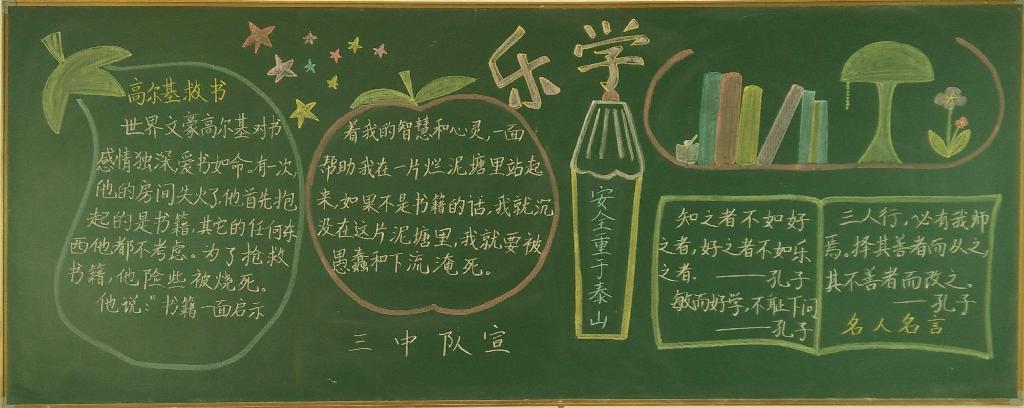 高尔基救书
世界文豪高尔基对书
感情独深,爱书如命。有一次,
他的房间失火了,他首先抱
起的是书籍,其它的任何东
西他都不考虑。为了抢救
书籍,他险些被烧死。
他说:"书籍一面启示
着我的智慧和心灵,一面
帮助我在一片烂泥塘里站起
来,如果不是书籍的话,我就沉
没在这片泥塘里,我就要被
愚蠢和下流淹死。
三中队宣
乐学
安全重于泰山
知之者不如好
之者,好之者不如乐
之者.——孔子
敏而好学,不耻下问
——孔子
三人行,必有我师
焉。择其善者而从之,
其不善者而改之、
——孔子
名人名言